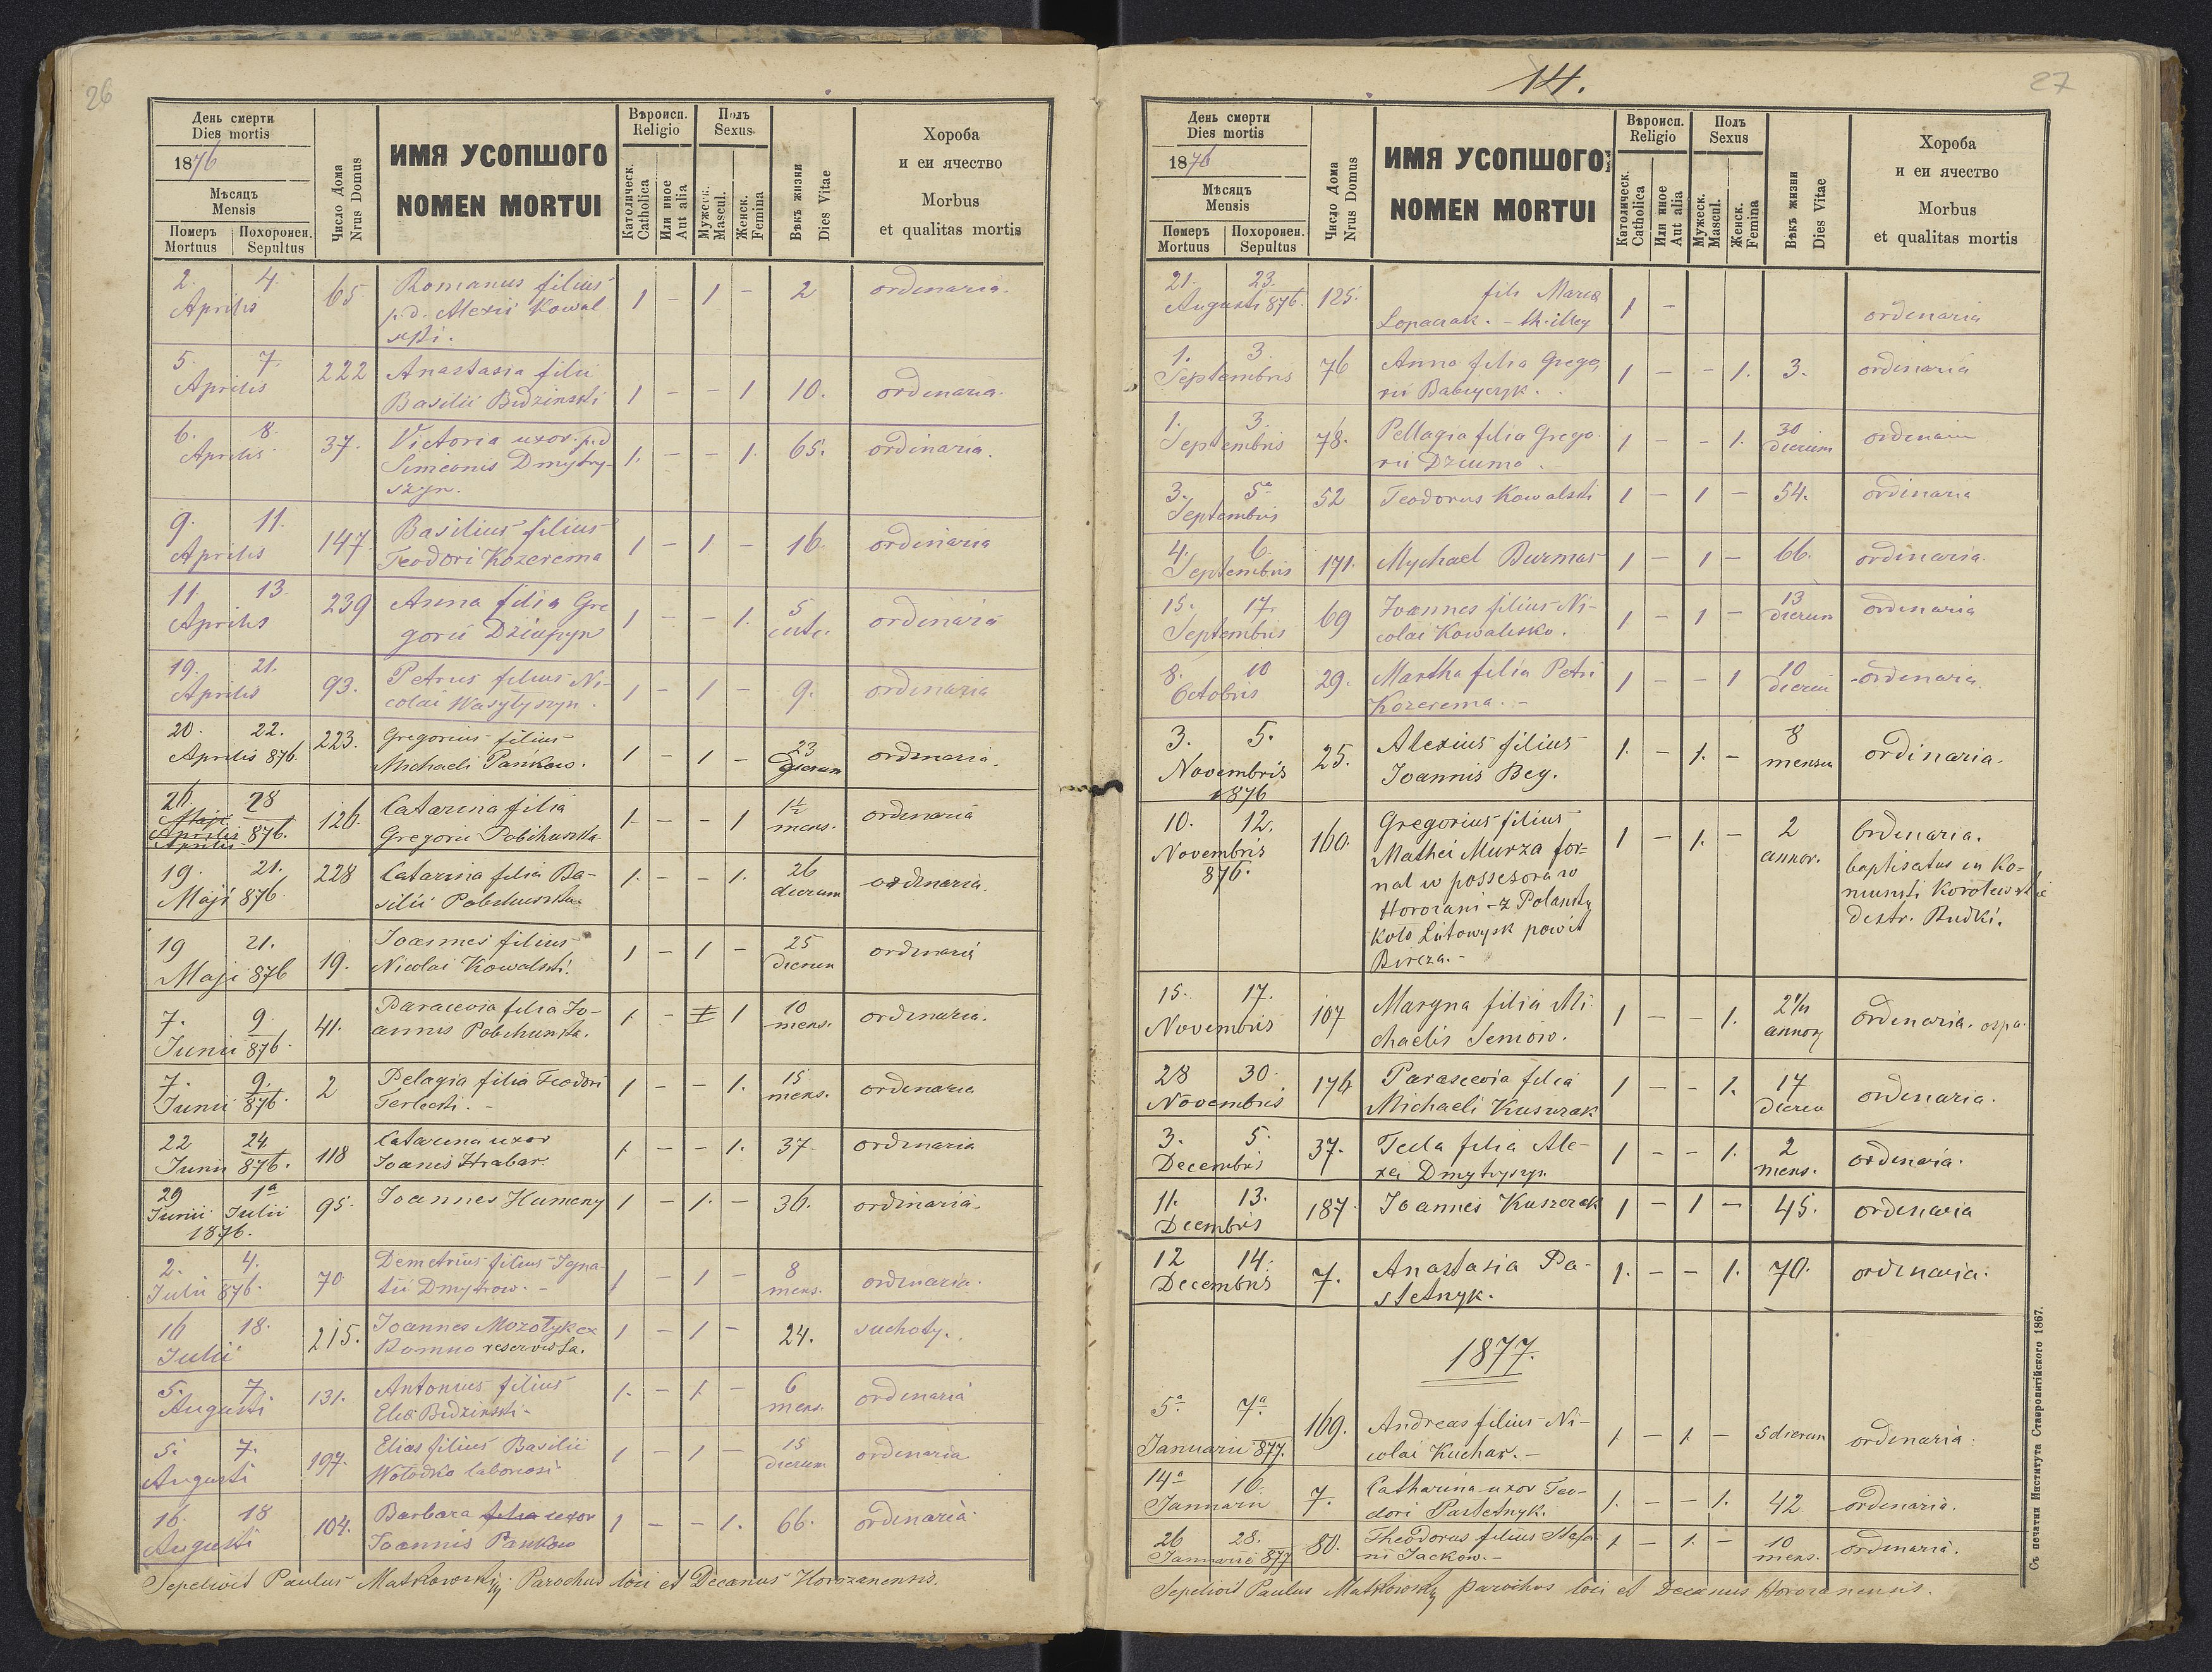 26
День смерти
Dies mortis
1876
Мѣсяцъ
Mensis
Померъ Похоронен.
Mortuus Sepultus
Число Дома
Nrus Domus
ИМЯ УСОПШОГО
NOMEN MORTUI
Вѣроисп.
Religio
Католическ.
Catholica
Или иное
Aut alia
Полъ
Sexus
Мужеск.
Mascul.
Женск.
Femina
Вѣкъ жизни
Dies Vitae
Хороба
и еи ячество
Morbus
et qualitas mortis
2. 4. Aprilis 65 Romanus filius
p.d. Alexii Kowal
ski. 1 - 1 - 2 ordinaria.
5. 7. Aprilis 222 Anastasia filii
Basilii Bidzinski 1 - - 1 10. ordinaria.
6. 8. Aprilis 37. Victoria uxor. p.d
Simeonis Dmytry-
szyn. 1. - - 1. 65. ordinaria.
9. 11. Aprilis 147. Basilius filius
Teodori Kozerema 1 - 1 - 16. ordinaria
11. 13. Aprilis 239 Anna filia Gre
gorii 1 - - 1. 5 ordinaria
19. 21. Aprilis 93. Petrus filius Ni-
colai Wasylyszyn. 1 - 1 - 9. ordinaria
20. 22. Aprilis 876. 223. Gregorius filius
Michaeli Pankow. 1 - 1 - 23 dierum ordinaria.
26. 28 Aprilis 876. 126. Catarina filia
Gregorii 1 - - 1 1½ mens. ordinaria
19. 21. Maji 876. 228 Catarina filia Ba-
silii 1. - - 1. 26 dierum ordinaria.
19 21. Maji 876 19. Joannes filius
Nicolai Kowalski. 1 - 1 - 25 dierum ordinaria
7. 9. Junii 876. 41. Parascevia filia Jo-
annis 1 - 1 10 mens. ordinaria.
7. 9. Junii 876. 2 Pelagia filia Teodori
Terlecki. - 1 - - 1. 15 mens. ordinaria
22 24. Junii 876. 118 Catarina uxor
Joanis Hrabar. 1 - - 1. 37. ordinaria
29 1a Junii Julii
1876. 95. Joannes Humeny 1 - 1. - 36. ordinaria.
2. 4. Julii 876. 70 Demetrius filius Igna-
tii Dmytrow. - 1 - 1 - 8 mens. ordinaria.
16 18. Julii 215. Joannes Mozolyk ex
reservista. 1 - 1 - 24. suchoty.
5. 7. Augusti 131. Antonius filius
Eliae Bidzinski. 1. - 1. - 6 mens. ordinaria
5. 7. Augusti 197. Elias filius Basilii
Wolodko laboriosi 1 - 1 - 15 dierum ordinaria
16. 18 Augusti 104. Barbara filia uxor
Joannis Pankow 1 - - 1. 66. ordinaria.
Sepelivit Paulus Matkowskij Parochus loci et Decanus Horozanensis.
14.
27
День смерти
Dies mortis
1876
Мѣсяцъ
Mensis
Померъ Похоронен.
Mortuus Sepultus
Число Дома
Nrus Domus
ИМЯ УСОПШОГО
NOMEN MORTUI
Вѣроисп.
Religio
Католическ.
Catholica
Или иное
Aut alia
Полъ
Sexus
Мужеск.
Mascul.
Женск.
Femina
Вѣкъ жизни
Dies Vitae
Хороба
и еи ячество
Morbus
et qualitas mortis
21. 23. Augusti 876. 125. fili Maria
Lopaczak. 1 - ordinaria
1. 3. Septembris 76 Anna filia Grego
rii Babyczyk. 1 - - 1. 3. ordinaria
1. 3. Septembris 78. Pellagia filia Grego
rii Dziuma. 1 - - 1. 30 dierum ordinaria
3. 5a Septembris 52 Teodorus Kowalski 1 - 1 - 54. ordinaria
4. 6. Septembris 171. Mychael Burmas 1 - 1 - 66. ordinaria.
15. 17. Septembris 69 Joannes filius Ni-
colai Kowalisko. 1 - 1 - 13 dierum ordinaria
8. 10 Octobris 29. Martha filia Petri
Kozerema. - 1 - - 1 10 dierum ordinaria.
3. 5. Novembris
1876 25. Alexius filius
Joannis Bey. 1. - 1. - 8 mensium ordinaria.
10. 12. Novembris
876. 160. Gregorius filius
Mathei Murza for=
nal u possesora w
Horozani - z Polansky
koło Liutowysk powit
Bircza. - 1 - 1. - 2 annor. Ordinaria.
baptisatus in Ko-
distr. Rudki.
15. 17. Novembris 107 Maryna filia Mi
chaelis Semow. 1 - - 1. 2 annor ordinaria. ospa.
28 30. Novembris 176 Parascevia filia
Michaeli Kuszczak 1 - - 1. 17 dierum ordinaria.
3. 5. Decembris 37. Tecla filia Ale-
xei Dmytryszyn 1 - - 1. 2 mens. ordinaria.
11. 13. Decembris 187. Joannes Kuszczak 1 - 1 - 45. ordinaria
12 14. Decembris 7. Anastasia Pa-
stetnyk. 1. - - 1. 70. ordinaria.
1877.
5a 7a Januarii 877. 169. Andreas filius Ni-
colai Kuchar. - 1 - 1 - 5 dierum ordinaria.
14a 16. Januarii 7. Catharina uxor Teo-
dori Pastetnyk. 1. - - 1. 42. ordinaria.
26 28. Januarii 877 80. Theodorus filius Stefa
ni Jackow. - 1 - 1. - 10 mens. ordinaria.
Sepelivit Paulus Matkowsky parochus loci et Decanus Horozanensis.
Съ печатни Института Ставропігійского 1867.